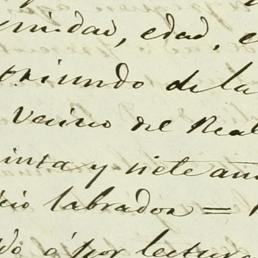 nidad, edad, e
triundo de la
Vecino del Real
inta y siete añ
cio labrador =
do ó por lectura